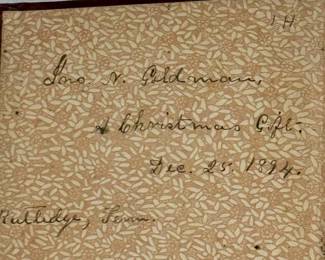 1 H
Jno. N. Goldman,
A Christmas Gift.
Dec. 25. 1894.
Rutledge, Tenn.